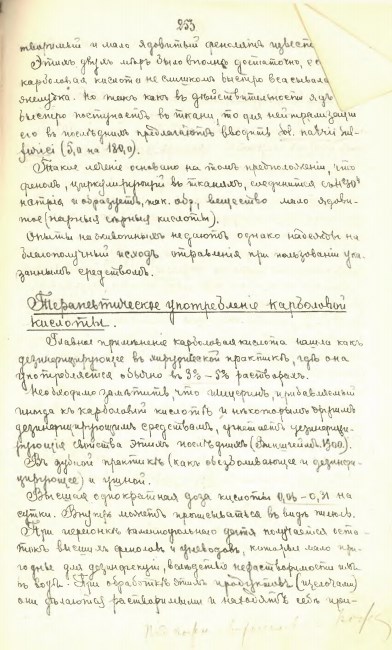 253
творимый и мало ядовитый фенолятъ извест
Этихъ двухъ мѣръ было вполнѣ достаточно, е
карболовая кислота не слишкомъ быстро всасывала
желудка. Но такъ какъ въ дѣйствительности ядъ
быстро поступаетъ въ ткани, то для нейтрализаціи
его въ послѣднихъ предлагаютъ вводить Sol. natrii sul-
furici (5,0 на 180,0).
Такое леченіе основано на томъ предположеніи, что
фенолъ, циркулирующій въ тканяхъ, соединится съ
натрія и образуетъ, так. обр., вещество мало ядови-
тое (парныя сѣрныя кислоты).
Опыты на животныхъ не даютъ однако надежды на
благополучный исходъ отравленія при пользованіи ука-
заннымъ средствомъ.
Терапевтическое употребленіе карболовой
кислоты.
Главное примѣненіе карболовая кислота нашла какъ
дезинфицирующее въ хирургической практикѣ, гдѣ она
употребляется обычно въ 3% – 5% растворахъ.
Необходимо замѣтить что глицеринъ, прибавляемый
иногда къ карболовой кислотѣ и нѣкоторымъ другимъ
дезинфицирующимъ средствамъ, угнетаетъ дезинфици-
рующія свойства этихъ послѣднихъ
Въ зубной практикѣ (какъ обезболивающее и дезинфи-
цирующее) и ушной.
Высшая однократная доза кислоты
сутки. Внутрь можетъ прописываться въ видѣ пилюль.
При перегонкѣ каменноугольнаго дегтя получается оста-
токъ высшихъ фенолов и углеводов, которые мало при-
годны для дезинфекціи, вслѣдствіе нерастворимости ихъ
въ водѣ. При обработкѣ этихъ продуктовъ (щелочами)
они дѣлаются растворимыми и находятъ себѣ при-